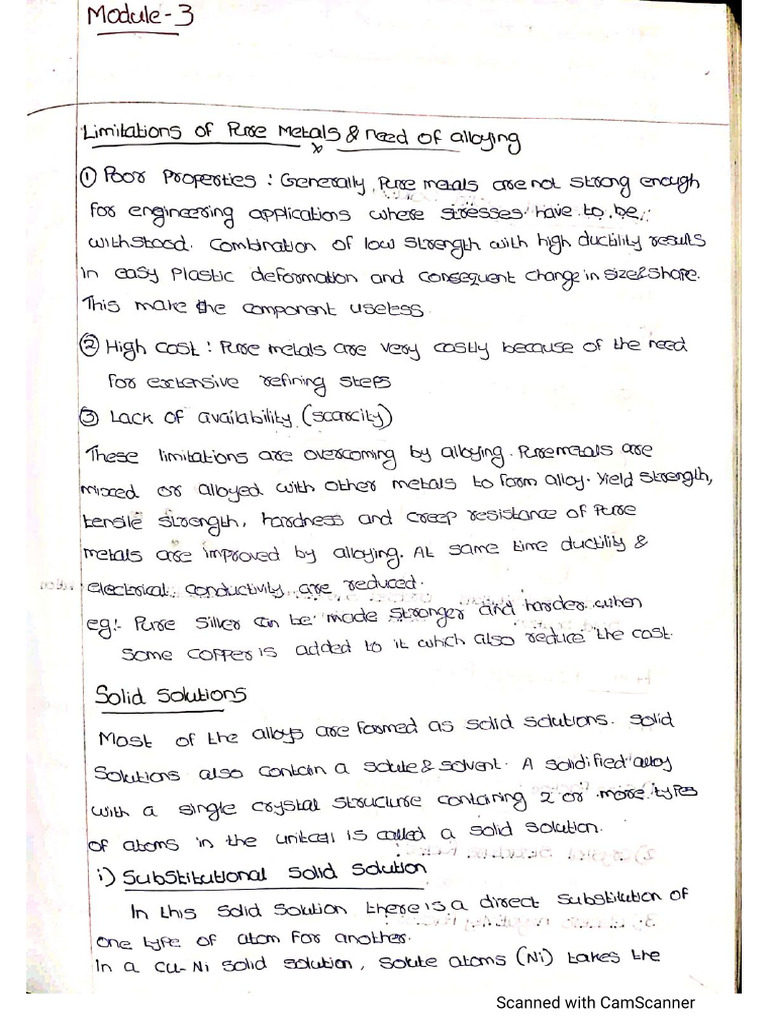 Module-3
Limitations of Pure Metals & need of alloying
① Poor Properties : Generally, Pure metals are not strong enough
for engineering applications where stresses have to be
withstood. Combination of low strength with high ductility results
in easy Plastic deformation and consequent change in size & shape.
This make the component useless.
② High cost : Pure metals are very costly because of the need
for extensive refining steps
③ Lack of availability (scarcity)
These limitations are overcoming by alloying. Pure metals are
mixed or alloyed with other metals to form alloy. Yield strength,
tensile strength, hardness and creep resistance of Pure
metals are improved by alloying. At same time ductility &
electrical conductivity are reduced.
eg:- Pure Silver can be made stronger and harder when
some copper is added to it which also reduce the cost.
Solid Solutions
Most of the alloys are formed as solid solutions. Solid
Solutions also contain a solute & solvent. A solidified alloy
with a single crystal structure containing 2 or more types
of atoms in the unitcell is called a solid solution.
i) Substitutional Solid Solution
In this solid solution there is a direct substitution of
one type of atom for another.
In a Cu-Ni solid solution, solute atoms (Ni) takes the
Scanned with CamScanner